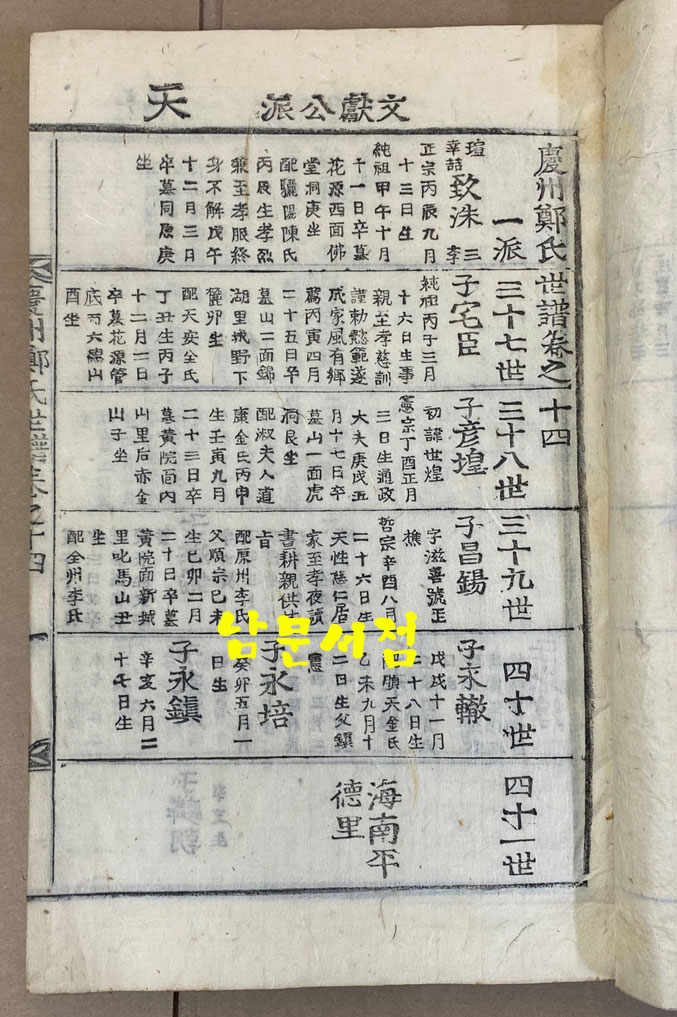 文獻公派 天
慶州鄭氏世譜卷之十四
一派
三十七世
三十八世
三十九世
四十世
四十一世
瑄
幸喆
致洙 三 李
正宗丙辰九月
十三日生
純祖甲午十月
十一日卒墓
花源西面佛
堂洞庚坐
配驪陽陳氏
丙辰生孝烈
兼至孝服終
身不解戊午
十二月三日
卒墓同原庚
坐
子宅臣
純祖丙子三月
十六日生事
親至孝慈訓
謹勅懿範遂
成家風有鄉
薦丙寅四月
二十五日卒
墓山一面錦
湖里城野下
麓卯生
配天安全氏
丁丑生丙子
十二月一日
卒墓花源管
底
酉坐
子彦堭
初諱世煌
憲宗丁酉正月
三日生通政
大夫庚戌五
月十七日卒
墓山一面虎
洞艮坐
配淑夫人道
康金氏丙申
生壬寅九月
二十三日卒
墓黃院面內
山里后赤金
山子坐
子昌錫
字滋喜號正
樵
哲宗辛酉八月
二十六日生
天性慈仁居
家至孝夜讀
晝耕親供
旨
配原州李氏
父順宗己未
生己卯二月
二十日卒墓
黃院面新城
里叱馬山丑
坐
配全州李氏
子永轍
戊戌十一月
二十八日生
配順天金氏
乙未九月十
二日生父鎭
憲
子永培
癸卯五月一
日生
子永鎭
辛亥六月二
十七日生
海南平
德里
慶州鄭氏世譜卷之十四
一
남문서점